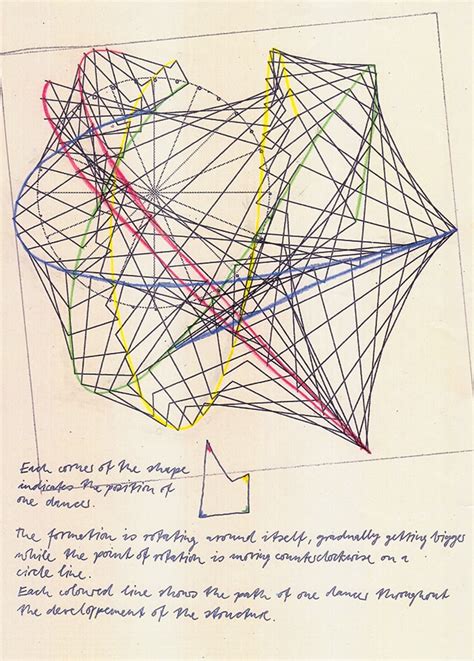 Each corner of the shape
indicates the position of
one dancer.
The formation is rotating around itself, gradually getting bigger
while the point of rotation is moving counterclockwise on a
circle line.
Each coloured line shows the path of one dancer throughout
the developpement of the structure.